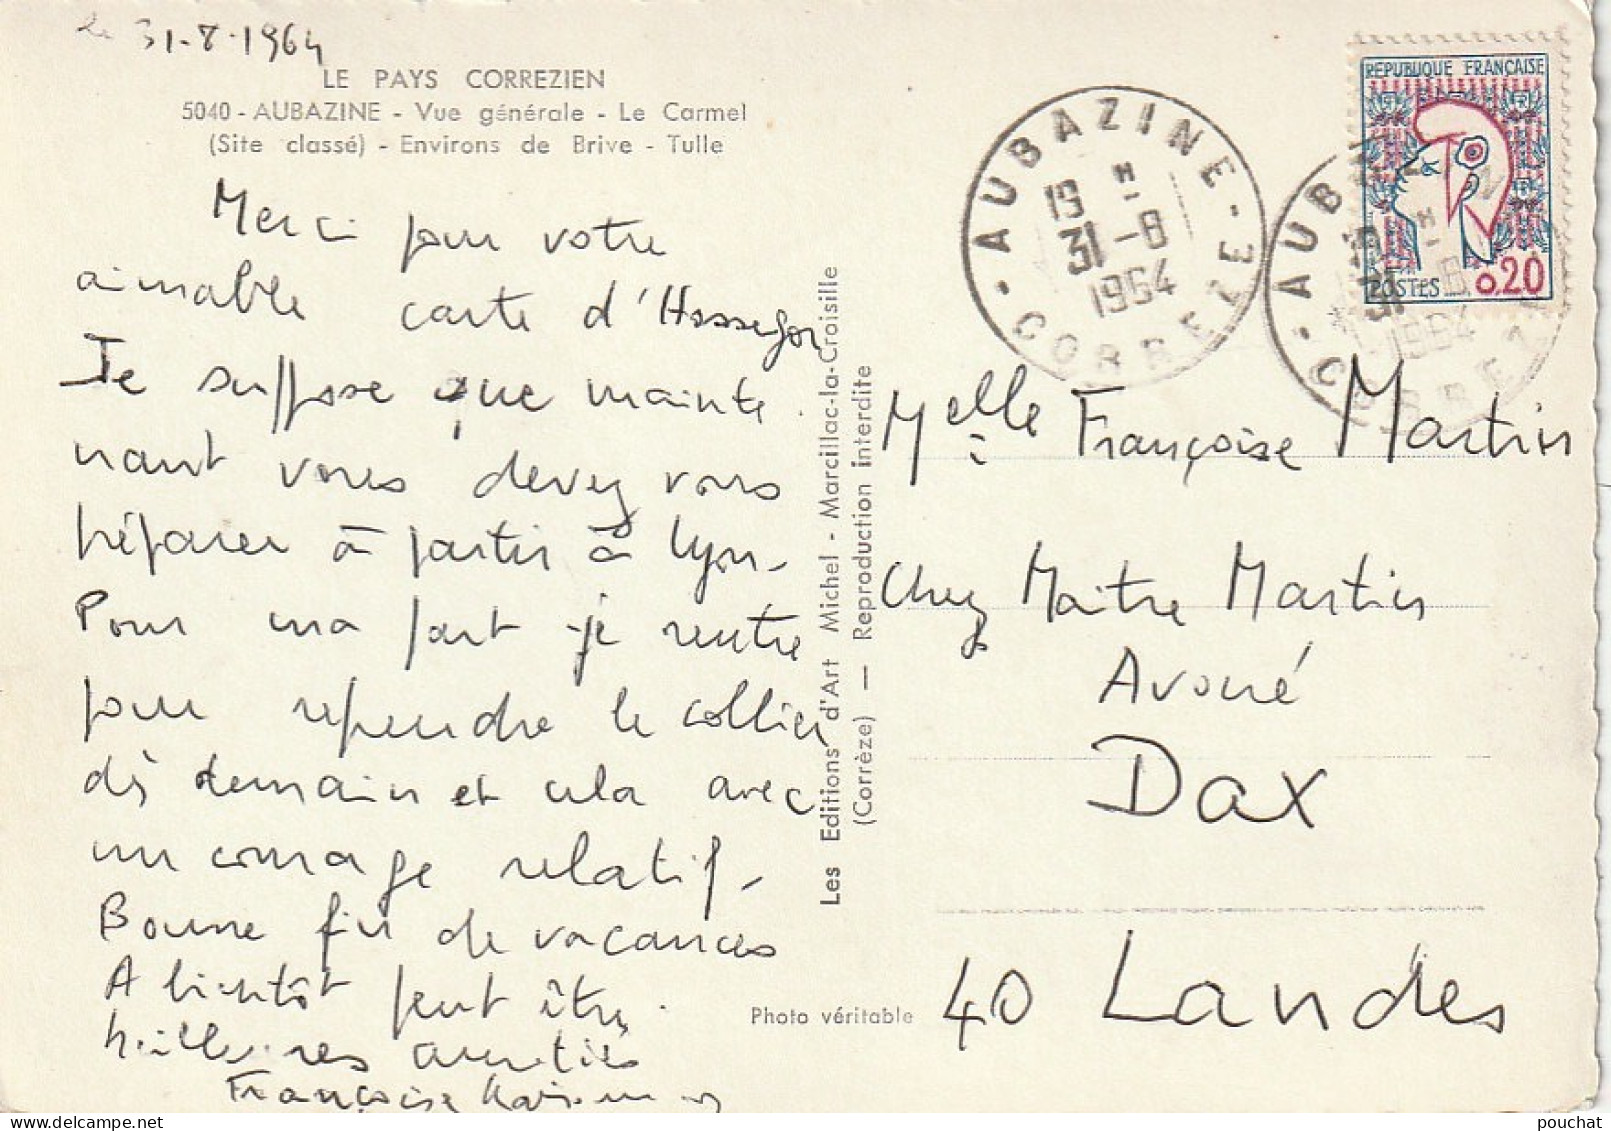 le 31-8-1964
LE PAYS CORREZIEN
5040 - AUBAZINE - Vue générale - Le Carmel
(Site classé) - Environs de Brive - Tulle
Merci pour votre
aimable carte d'Hossegor
Je suppose que mainte
nant vous devez vous
préparer à partir à Lyon -
Pour ma part je rentre
pour reprendre le collier
dès demain et cela avec
un courage relatif -
Bonne fin de vacances
A bientôt peut être.
Meilleures amitiés
Françoise
Les Editions d'Art Michel - Marcillac-la-Croisille
(Corrèze) — Reproduction interdite
Photo véritable
- AUBAZINE -
CORREZE
19 H
31 - 8
1964
- AUBAZINE
CORREZE
31 - 8
1964
REPUBLIQUE FRANÇAISE
POSTES 0,20
Melle Françoise Martin
Chez Maître Martin
Avoué
Dax
40 Landes
pouchat